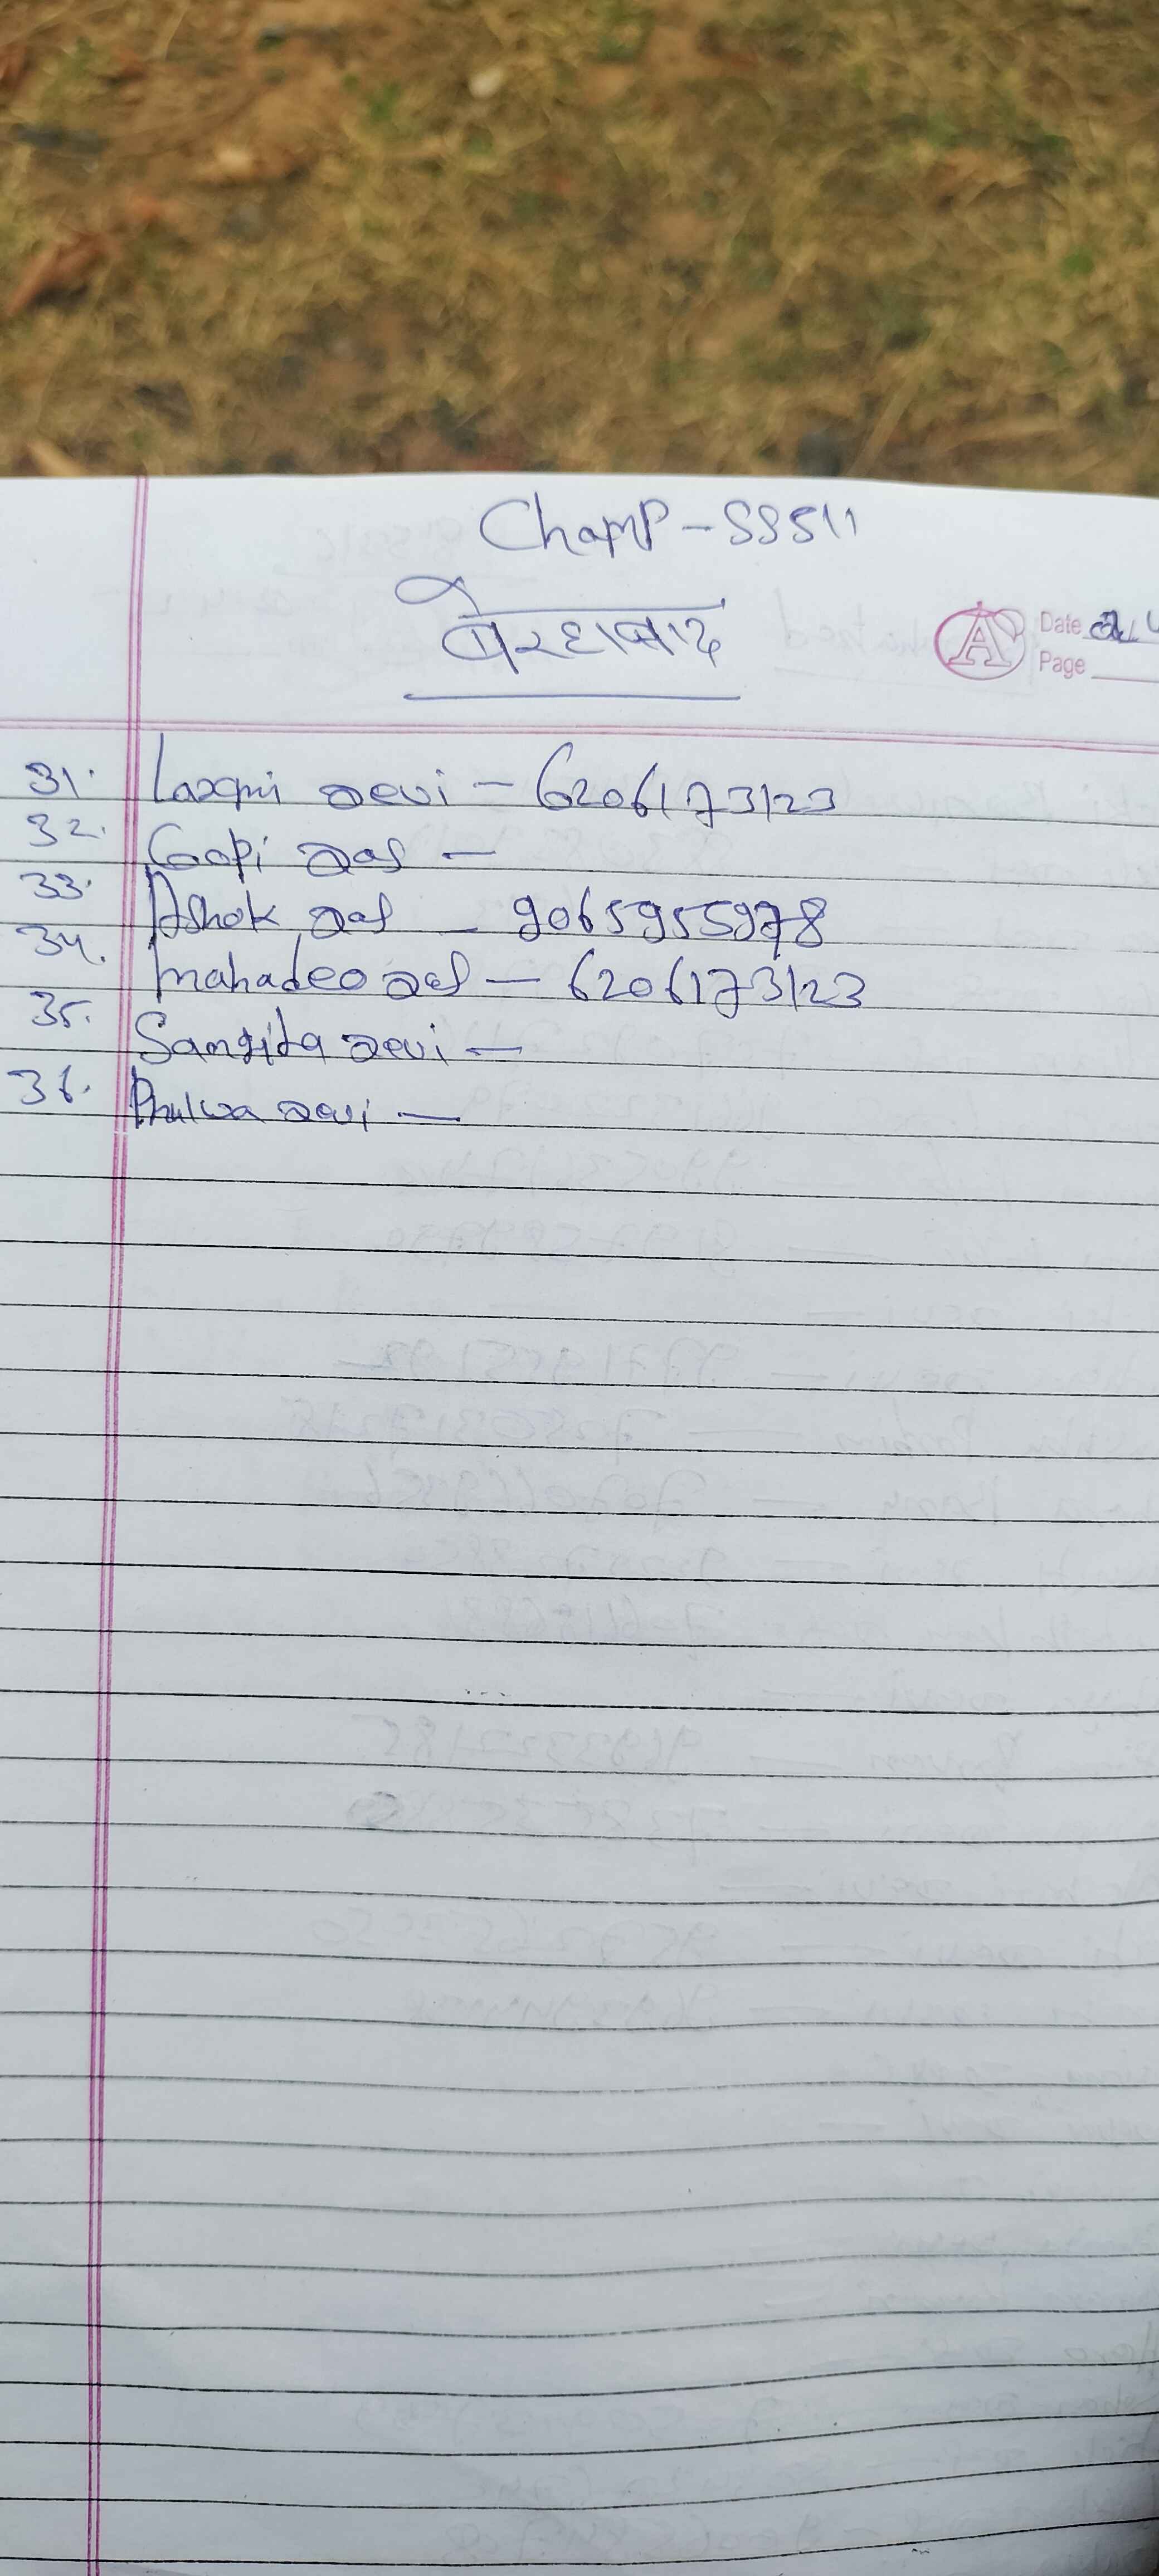 Champ-SS511
बेरहाबाद
A
Date 2
Page
31. Laxmi Devi - 6206173123
32. Gopi Das -
33. Ashok Das - 9065955978
34. Mahadeo Das - 6206173123
35. Sangita Devi -
36. Phulwa Devi -